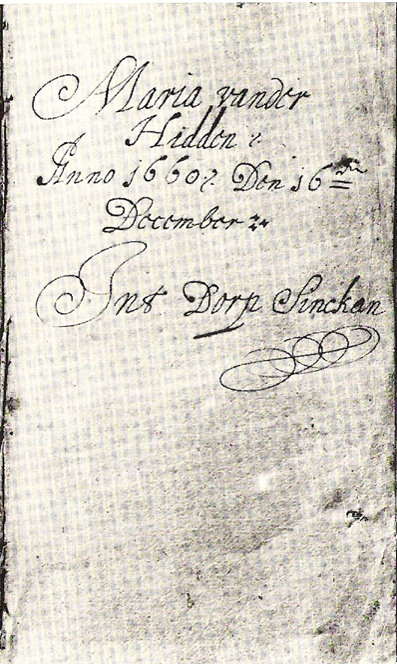 Maria vander
Hidden
Anno 1660 Den 16en
December
Int Dorp Sinckan